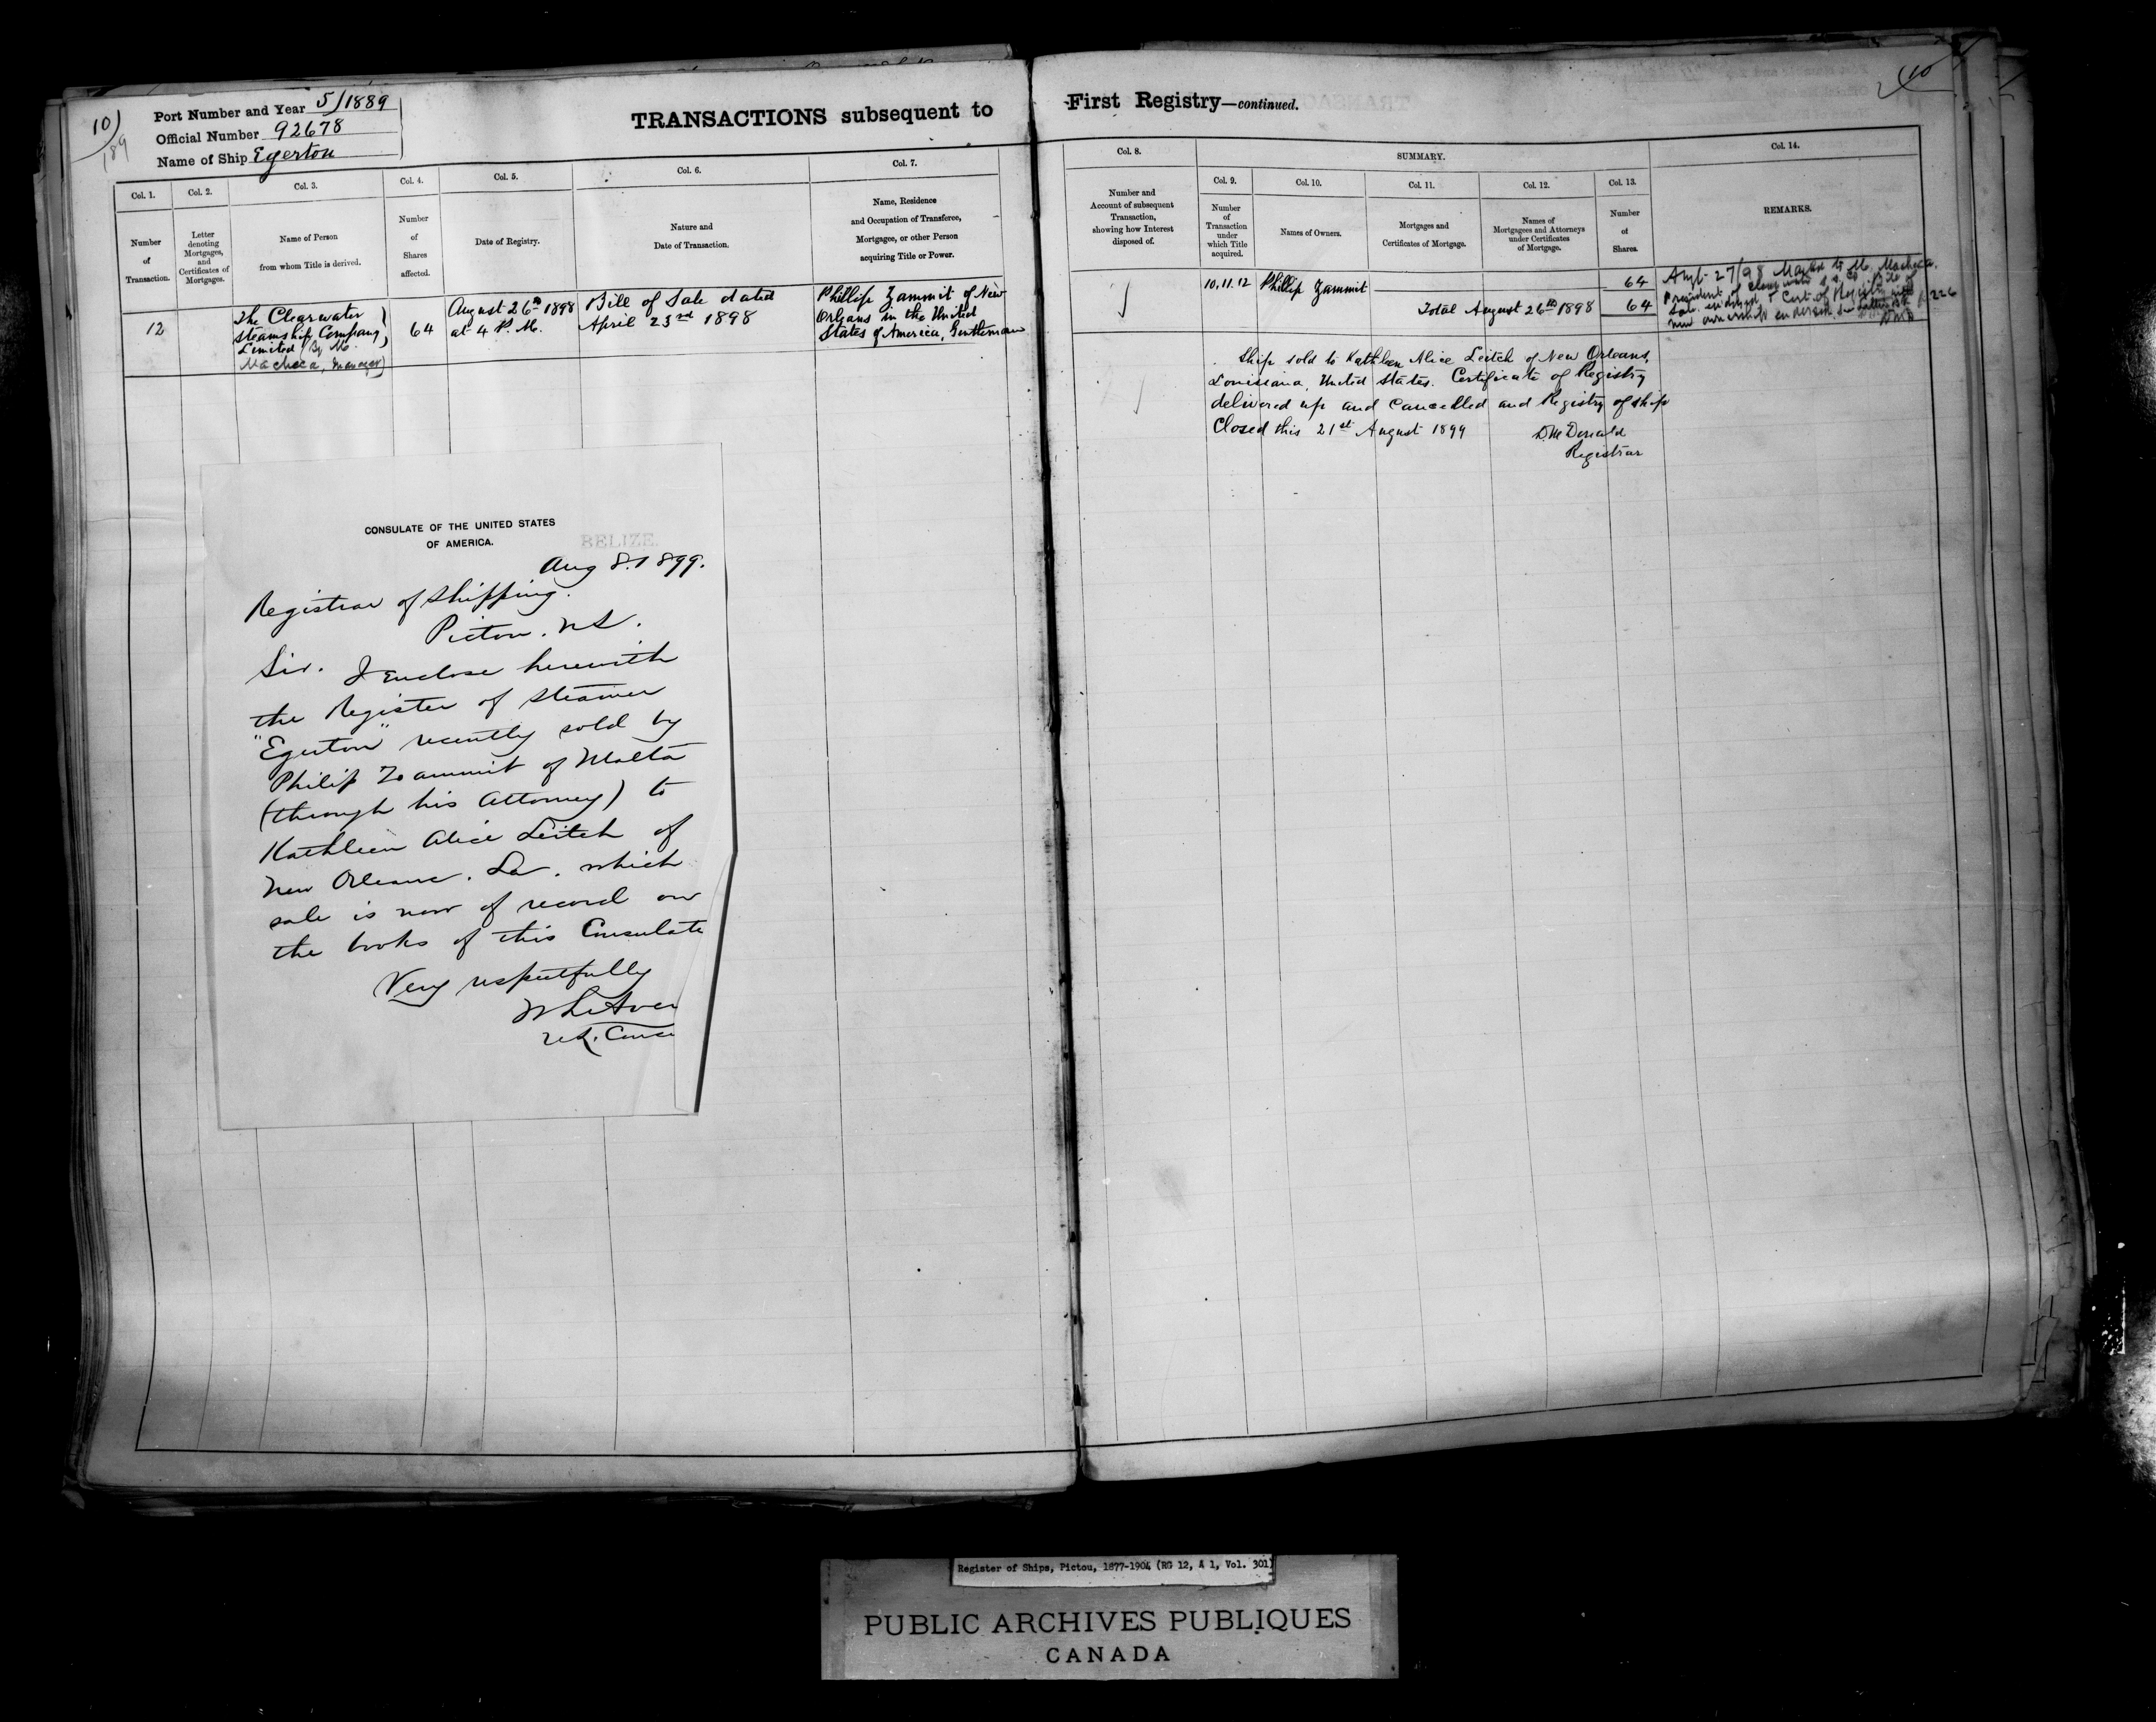 10
189
Port Number and Year 5/1889
Official Number 92678
Name of Ship Egerton
TRANSACTIONS subsequent to First Registry—continued.
10
Col. 1.
Number
of
Transaction.
Col. 2.
Letter
denoting
Mortgages,
and
Certificates of
Mortgages.
Col. 3.
Name of Person
from whom Title is derived.
Col. 4.
Number
of
Shares
affected.
Col. 5.
Date of Registry.
Col. 6.
Nature and
Date of Transaction.
Col. 7.
Name, Residence
and Occupation of Transferee,
Mortgagee, or other Person
acquiring Title or Power.
Col. 8.
Number and
Account of subsequent
Transaction,
showing how Interest
disposed of.
SUMMARY.
Col. 9.
Number
of
Transaction
under
which Title
acquired.
Col. 10.
Names of Owners.
Col. 11.
Mortgages and
Certificates of Mortgage.
Col. 12.
Names of
Mortgagees and Attorneys
under Certificates
of Mortgage.
Col. 13.
Number
of
Shares.
Col. 14.
REMARKS.
12
The Clearwater
Steamship Company,
Limited (By M.
Macheca, Manager)
64
August 26th 1898
at 4 P.M.
Bill of Sale dated
April 23rd 1898
Phillip Zammit of New
Orleans in the United
States of America, Gentleman
10.11.12
Phillip Zammit
64
Total August 26th 1898
64
27/98 Mailed to M. Macheca,
President of Clearwater S.S. Co Bill of
Sale endorsed & Cert. of Registry with
new ownership endorsed
Ship sold to Kathleen Alice Leitch of New Orleans,
Louisiana, United States. Certificate of Registry
delivered up and cancelled and Registry of ship
Closed this 21st August 1899
D. McDonald
Registrar
CONSULATE OF THE UNITED STATES
OF AMERICA.
BELIZE.
Aug 8. 1899.
Registrar of Shipping.
Pictou. N.S.
Sir. I Enclose herewith
the Register of Steamer
"Egerton" recently sold by
Philip Zammit of Malta
(through his Attorney) to
Kathleen Alice Leitch of
New Orleans. La. which
sale is now of record on
the books of this Consulate
Very respectfully
Register of Ships, Pictou, 1877-1904 (RG 12, A 1, Vol. 301)
PUBLIC ARCHIVES PUBLIQUES
CANADA